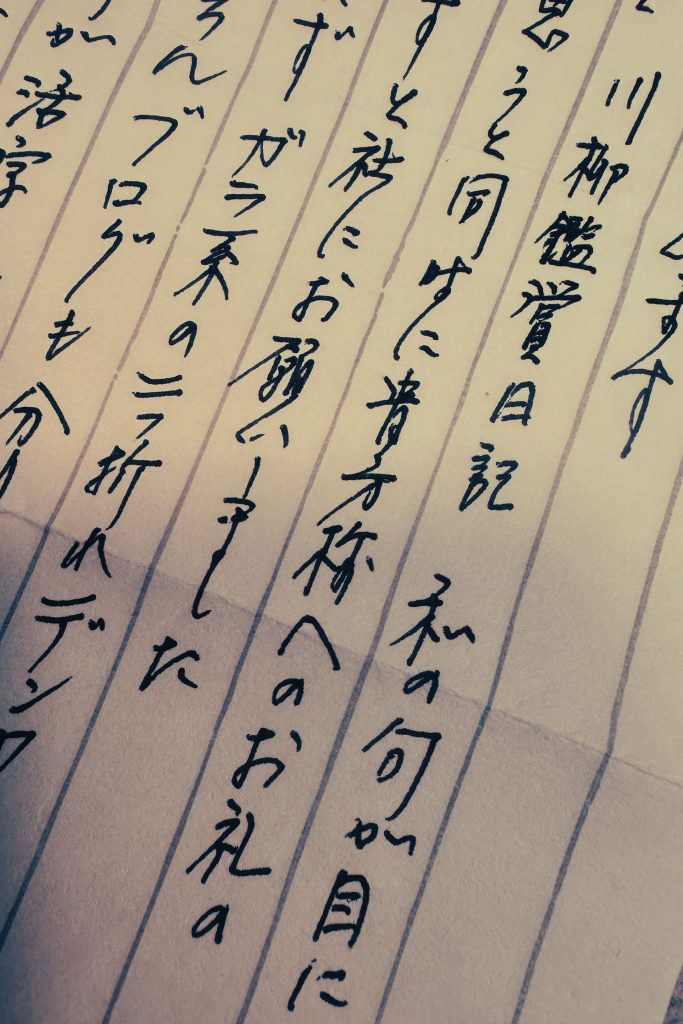 ます
川柳鑑賞日記　私の句が目に
思うと同時に貴方様へのお礼の
すと社にお願いしました
ず ガラ系の二ツ折れデンワ
ろんブログも分り
が活字